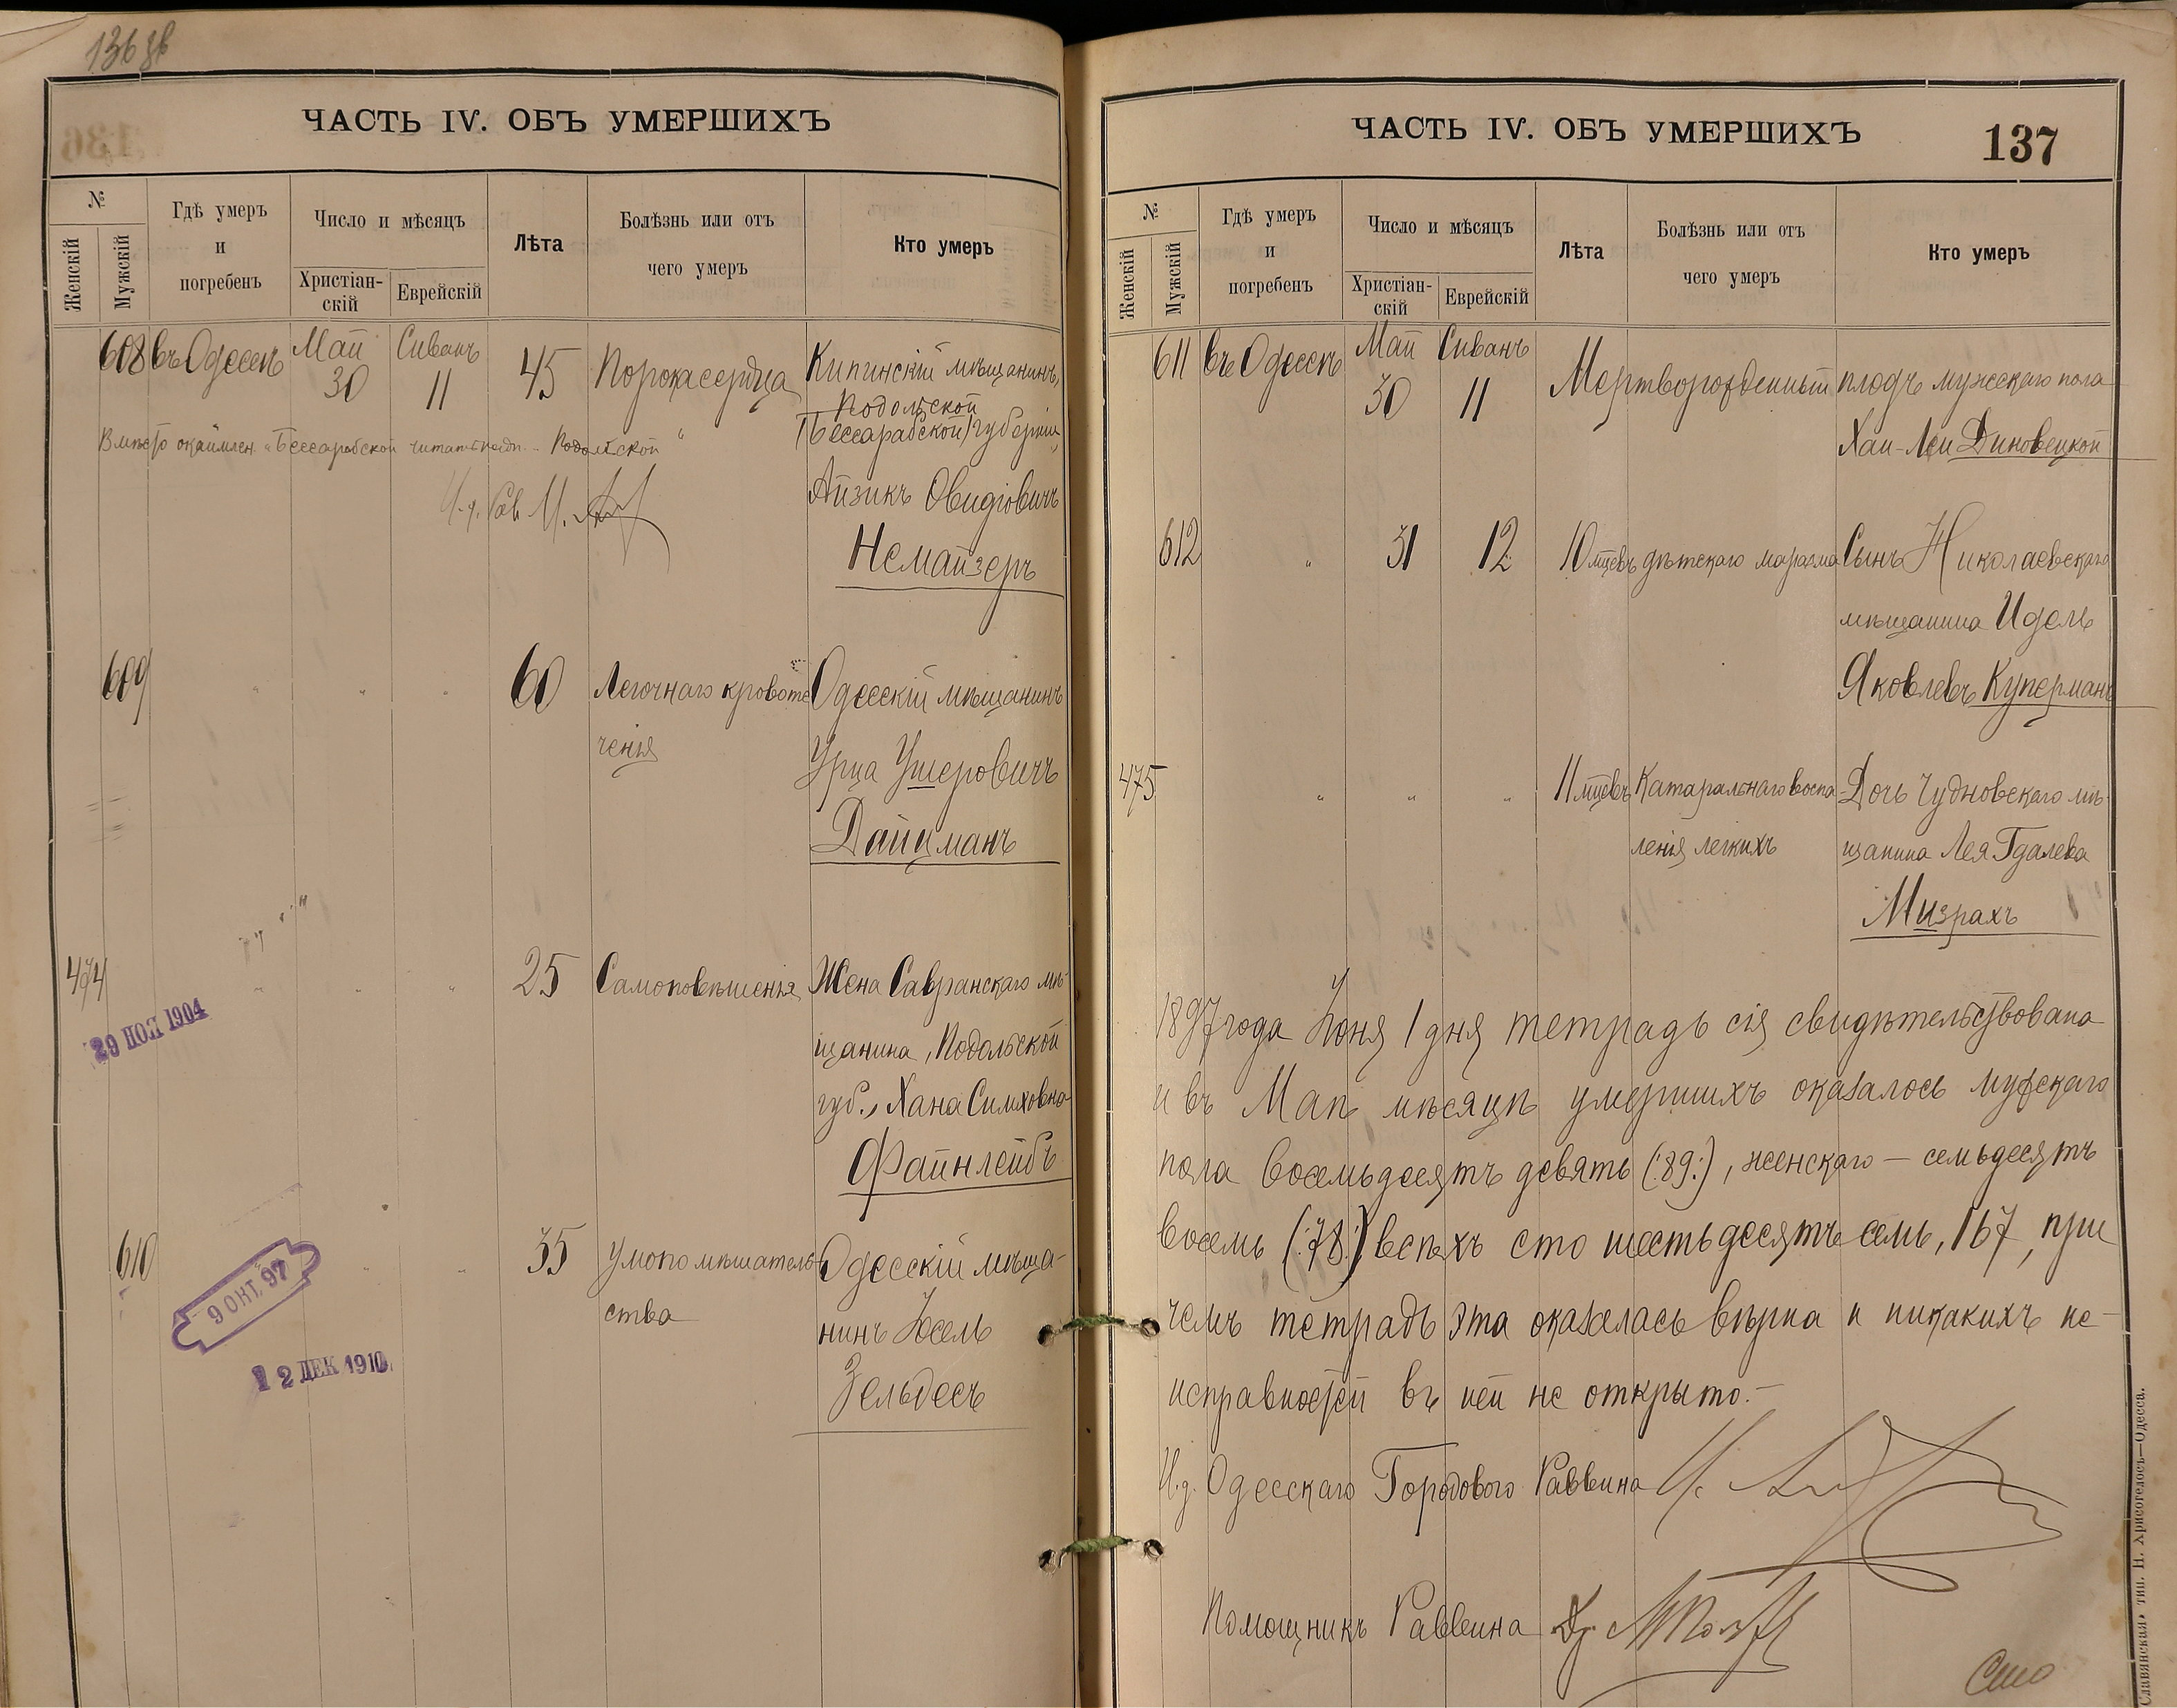 136 зв
ЧАСТЬ IV. ОБЪ УМЕРШИХЪ
№
Женскій
Мужскій
Гдѣ умеръ
и
погребенъ
Число и мѣсяцъ
Христіан-
скій
Еврейскій
Лѣта
Болѣзнь или отъ
чего умеръ
Кто умеръ
608 въ Одессѣ Май 30 Сиванъ 11 45 Порока сердца Кипинскій мѣщанинъ,
Подольской
(Бессарабской) губерніи,
Вмѣсто окаймлен. "Бессарабской" читать надп. "Подольской"
Айзикъ Овидіовичъ
И. д. Рав.
Немайзеръ
609 " " " 60 Легочнаго кровоте Одесскій мѣщанинъ
ченія Урца Ушеровичъ
Дайчманъ
474 " " " 25 Самоповѣшенія Жена Савранскаго мѣ-
29 НОЯ 1904
щанина, Подольской
губ., Хана Симховна
Файнлейбъ
610 " " 35 Умопомѣшатель Одесскій мѣща-
ства нинъ Іосель
9 ОКТ. 97
Зельдесъ
12 ДЕК 1910
ЧАСТЬ IV. ОБЪ УМЕРШИХЪ
137
№
Женскій
Мужскій
Гдѣ умеръ
и
погребенъ
Число и мѣсяцъ
Христіан-
скій
Еврейскій
Лѣта
Болѣзнь или отъ
чего умеръ
Кто умеръ
611 въ Одессѣ Май 30 Сиванъ 11 Мертворожденный плодъ мужескаго пола
Хаи-Леи Диновецкой
612 " 31 12 10 мцевъ дѣтскаго маразма Сынъ Николаевскаго
мѣщанина Идель
Яковлевъ Куперманъ
475 " " " 11 мцевъ Катаральнаго воспа- Дочь Чудновскаго мѣ-
ленія легкихъ щанина Лея Гдалева
Мизрахъ
1897 года Іюня 1 дня тетрадь сія свидѣтельствована
и въ Маѣ мѣсяцѣ умершихъ оказалось мужскаго
пола восемьдесятъ девять (:89:), женскаго — семьдесятъ
восемь (:78:) всѣхъ сто шестьдесятъ семь, 167, при
чемъ тетрадь эта оказалась вѣрна и никакихъ не-
исправностей въ ней не открыто.—
И.д. Одесскаго Городового Раввина
Помощникъ Раввина Др.
Сто
Славянская" тип. Н. Хрисогелосъ—Одесса.